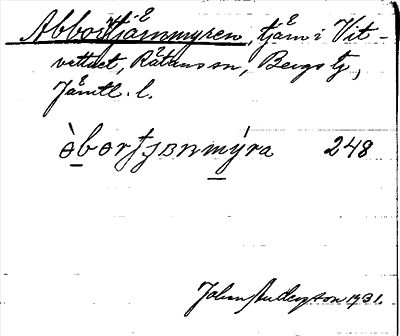 Abbortjärnmyren, tjärn i Vit-
vattnet, Rätans sn, Bergs tj,
Jämtl. l.
òbortjɜnmýra 248
Johan Anderson 1931.